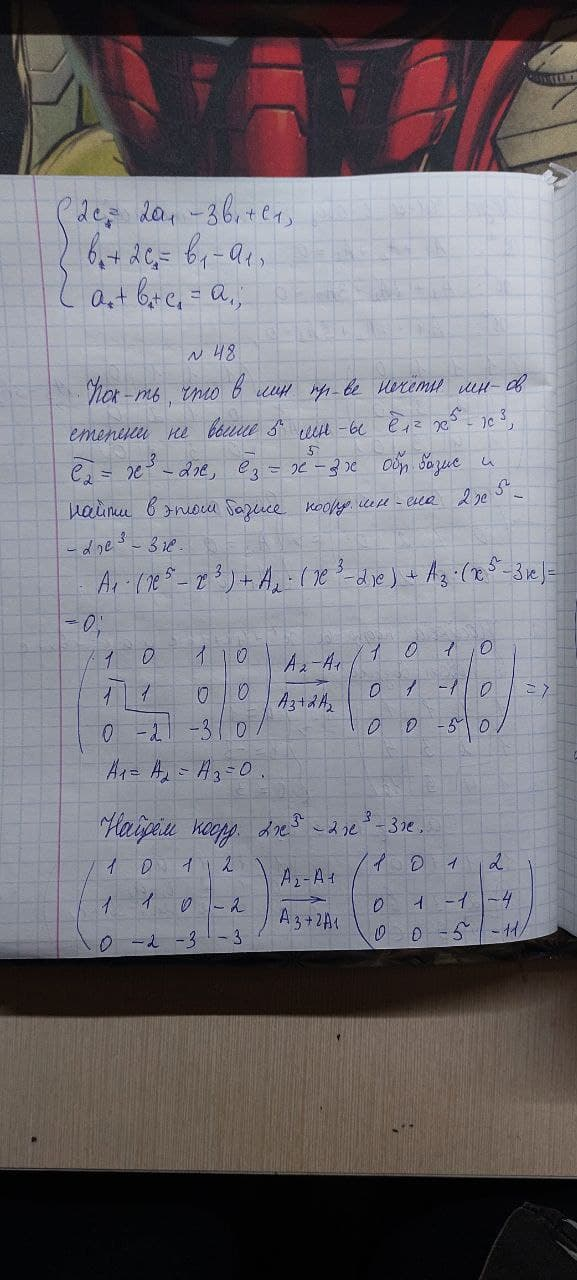 { 2c₁ = 2a₁ - 3b₁ + c₁,
b₁ + 2c₁ = b₁ - a₁,
a₁ + b₁ + c₁ = a₁;
N 48
Пок-ть, что в лин пр-ве нечётн мн-ов
степени не выше 5 мн-ы ē₁ = x⁵ - x³,
ē₂ = x³ - 2x, ē₃ = x⁵ - 3x обр базис и
найти в этом базисе коорд. мн-ена 2x⁵ -
- 2x³ - 3x.
A₁·(x⁵ - x³) + A₂·(x³ - 2x) + A₃·(x⁵ - 3x) =
= 0;
( 1 0 1 | 0 ) A₂ - A₁ ( 1 0 1 | 0 )
( 1 1 0 | 0 ) → ( 0 1 -1 | 0 ) =>
( 0 -2 -3 | 0 ) A₃ + 2A₂ ( 0 0 -5 | 0 )
A₁ = A₂ = A₃ = 0.
Найдём коорд. 2x⁵ - 2x³ - 3x.
( 1 0 1 | 2 ) A₂ - A₁ ( 1 0 1 | 2 )
( 1 1 0 | -2 ) → ( 0 1 -1 | -4 )
( 0 -2 -3 | -3 ) A₃ + 2A₁ ( 0 0 -5 | -11 )